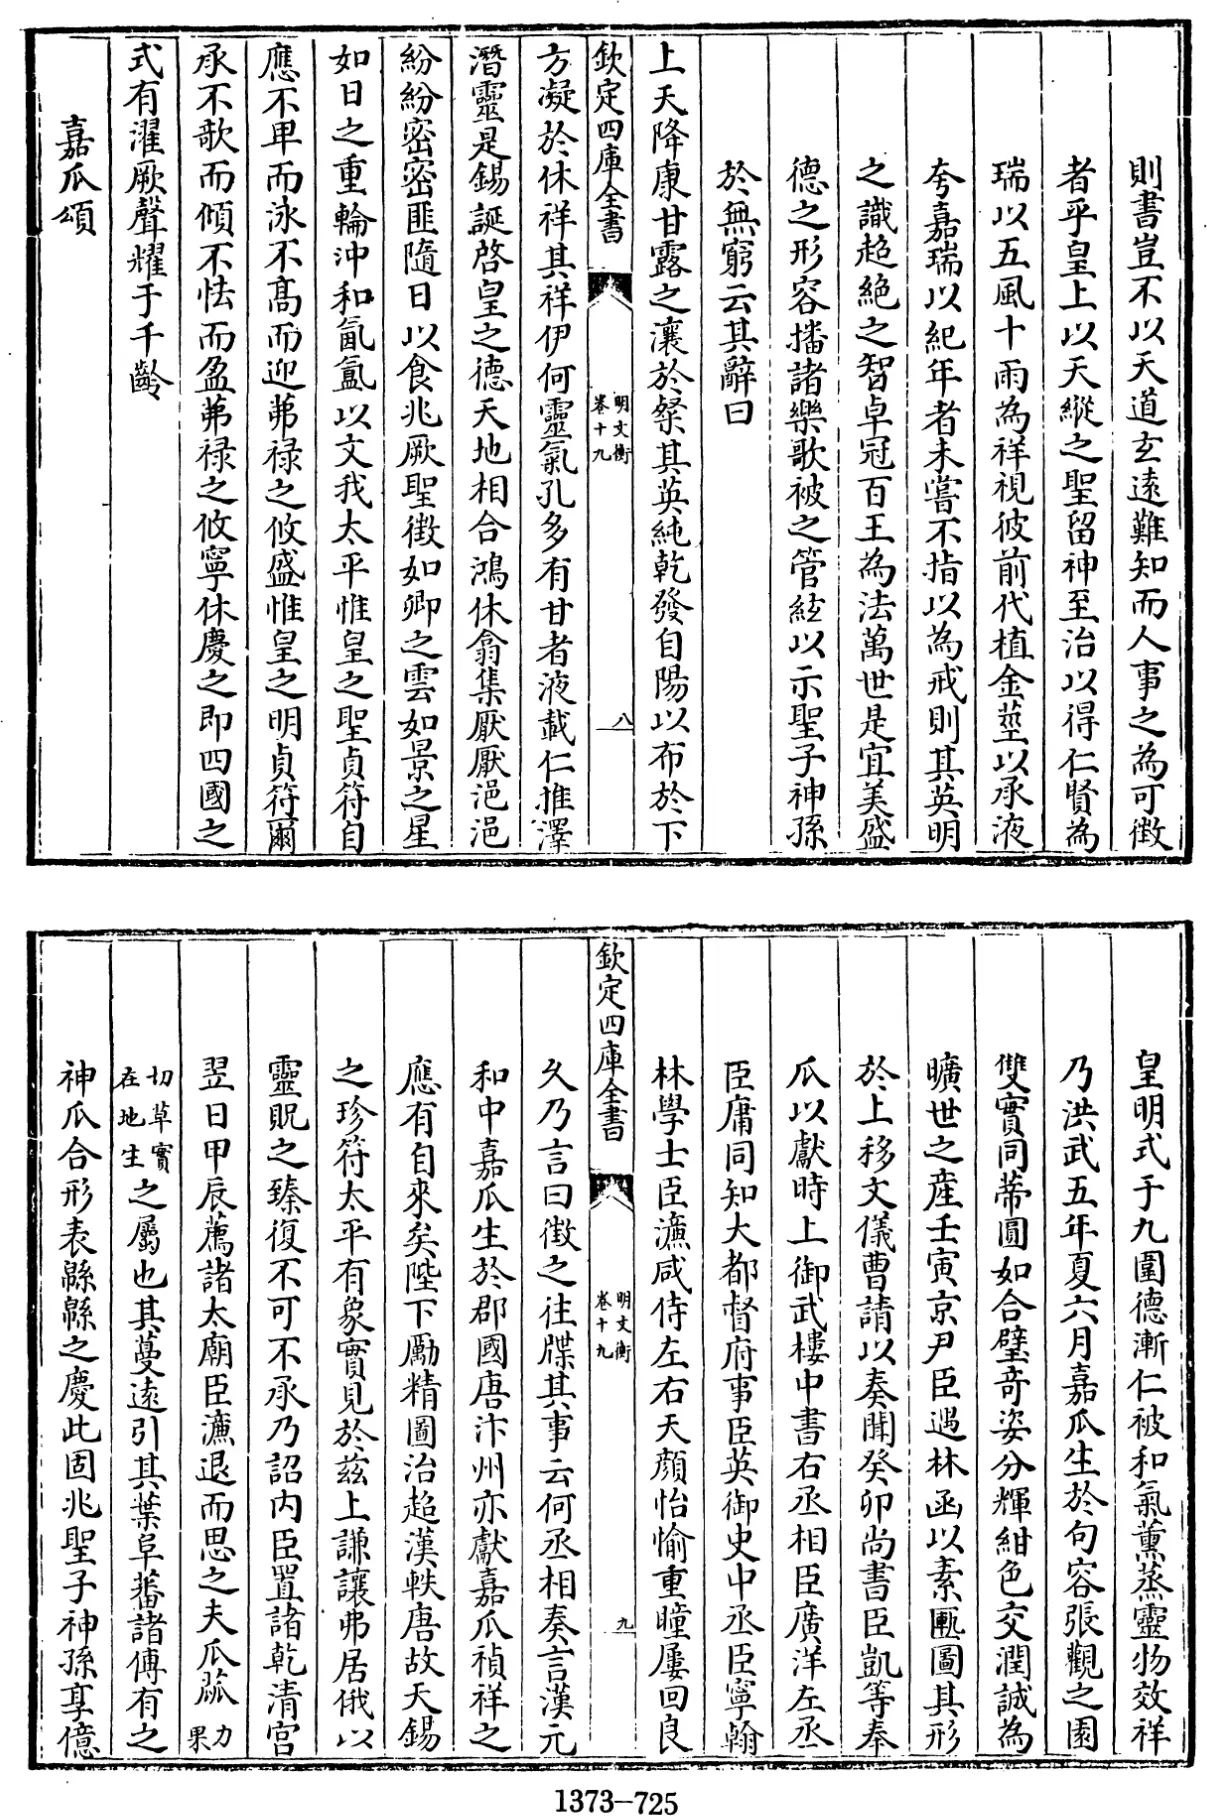 則書豈不以天道玄遠難知而人事之為可徴
者乎皇上以天縱之聖留神至治以得仁賢為
瑞以五風十雨為祥視彼前代植金莖以承液
夸嘉瑞以紀年者未嘗不指以為戒則其英明
之識超絶之智卓冠百王為法萬世是宜美盛
德之形容播諸樂歌被之管絃以示聖子神孫
於無窮云其辭曰
上天降康甘露之瀼於粲其英純乾發自陽以布於下
欽定四庫全書
明文衡
卷十九
八
方凝於休祥其祥伊何靈氣孔多有甘者液載仁推澤
潛靈是錫誕啓皇之德天地相合鴻休翕集厭厭浥浥
紛紛密密匪隨日以食兆厥聖徴如卿之雲如景之星
如日之重輪沖和氤氳以文我太平惟皇之聖貞符自
應不卑而泳不髙而迎茀禄之攸盛惟皇之明貞符爾
承不歌而傾不怯而盈茀禄之攸寧休慶之即四國之
式有濯厥聲耀于千齡
嘉瓜頌
皇明式于九圍德漸仁被和氣薰蒸靈物效祥
乃洪武五年夏六月嘉瓜生於句容張觀之園
雙實同蒂圓如合璧竒姿分輝紺色交潤誠為
曠世之産壬寅京尹臣遇林函以素匭圖其形
於上移文儀曹請以奏聞癸卯尚書臣凱等奉
瓜以獻時上御武樓中書右丞相臣廣洋左丞
臣庸同知大都督府事臣英御史中丞臣寧翰
林學士臣濂咸侍左右天顔怡愉重瞳屢回良
欽定四庫全書
明文衡
卷十九
九
久乃言曰徴之往牒其事云何丞相奏言漢元
和中嘉瓜生於郡國唐汴州亦獻嘉瓜禎祥之
應有自來矣陛下勵精圖治超漢軼唐故天錫
之珍符太平有象實見於兹上謙讓弗居俄以
靈貺之臻復不可不承乃詔内臣置諸乾清宫
翌日甲辰薦諸太廟臣濂退而思之夫瓜蓏力果
切草實在地生之屬也其蔓逺引其葉阜蕃諸傳有之
神瓜合形表緜緜之慶此固兆聖子神孫享億
1373—725